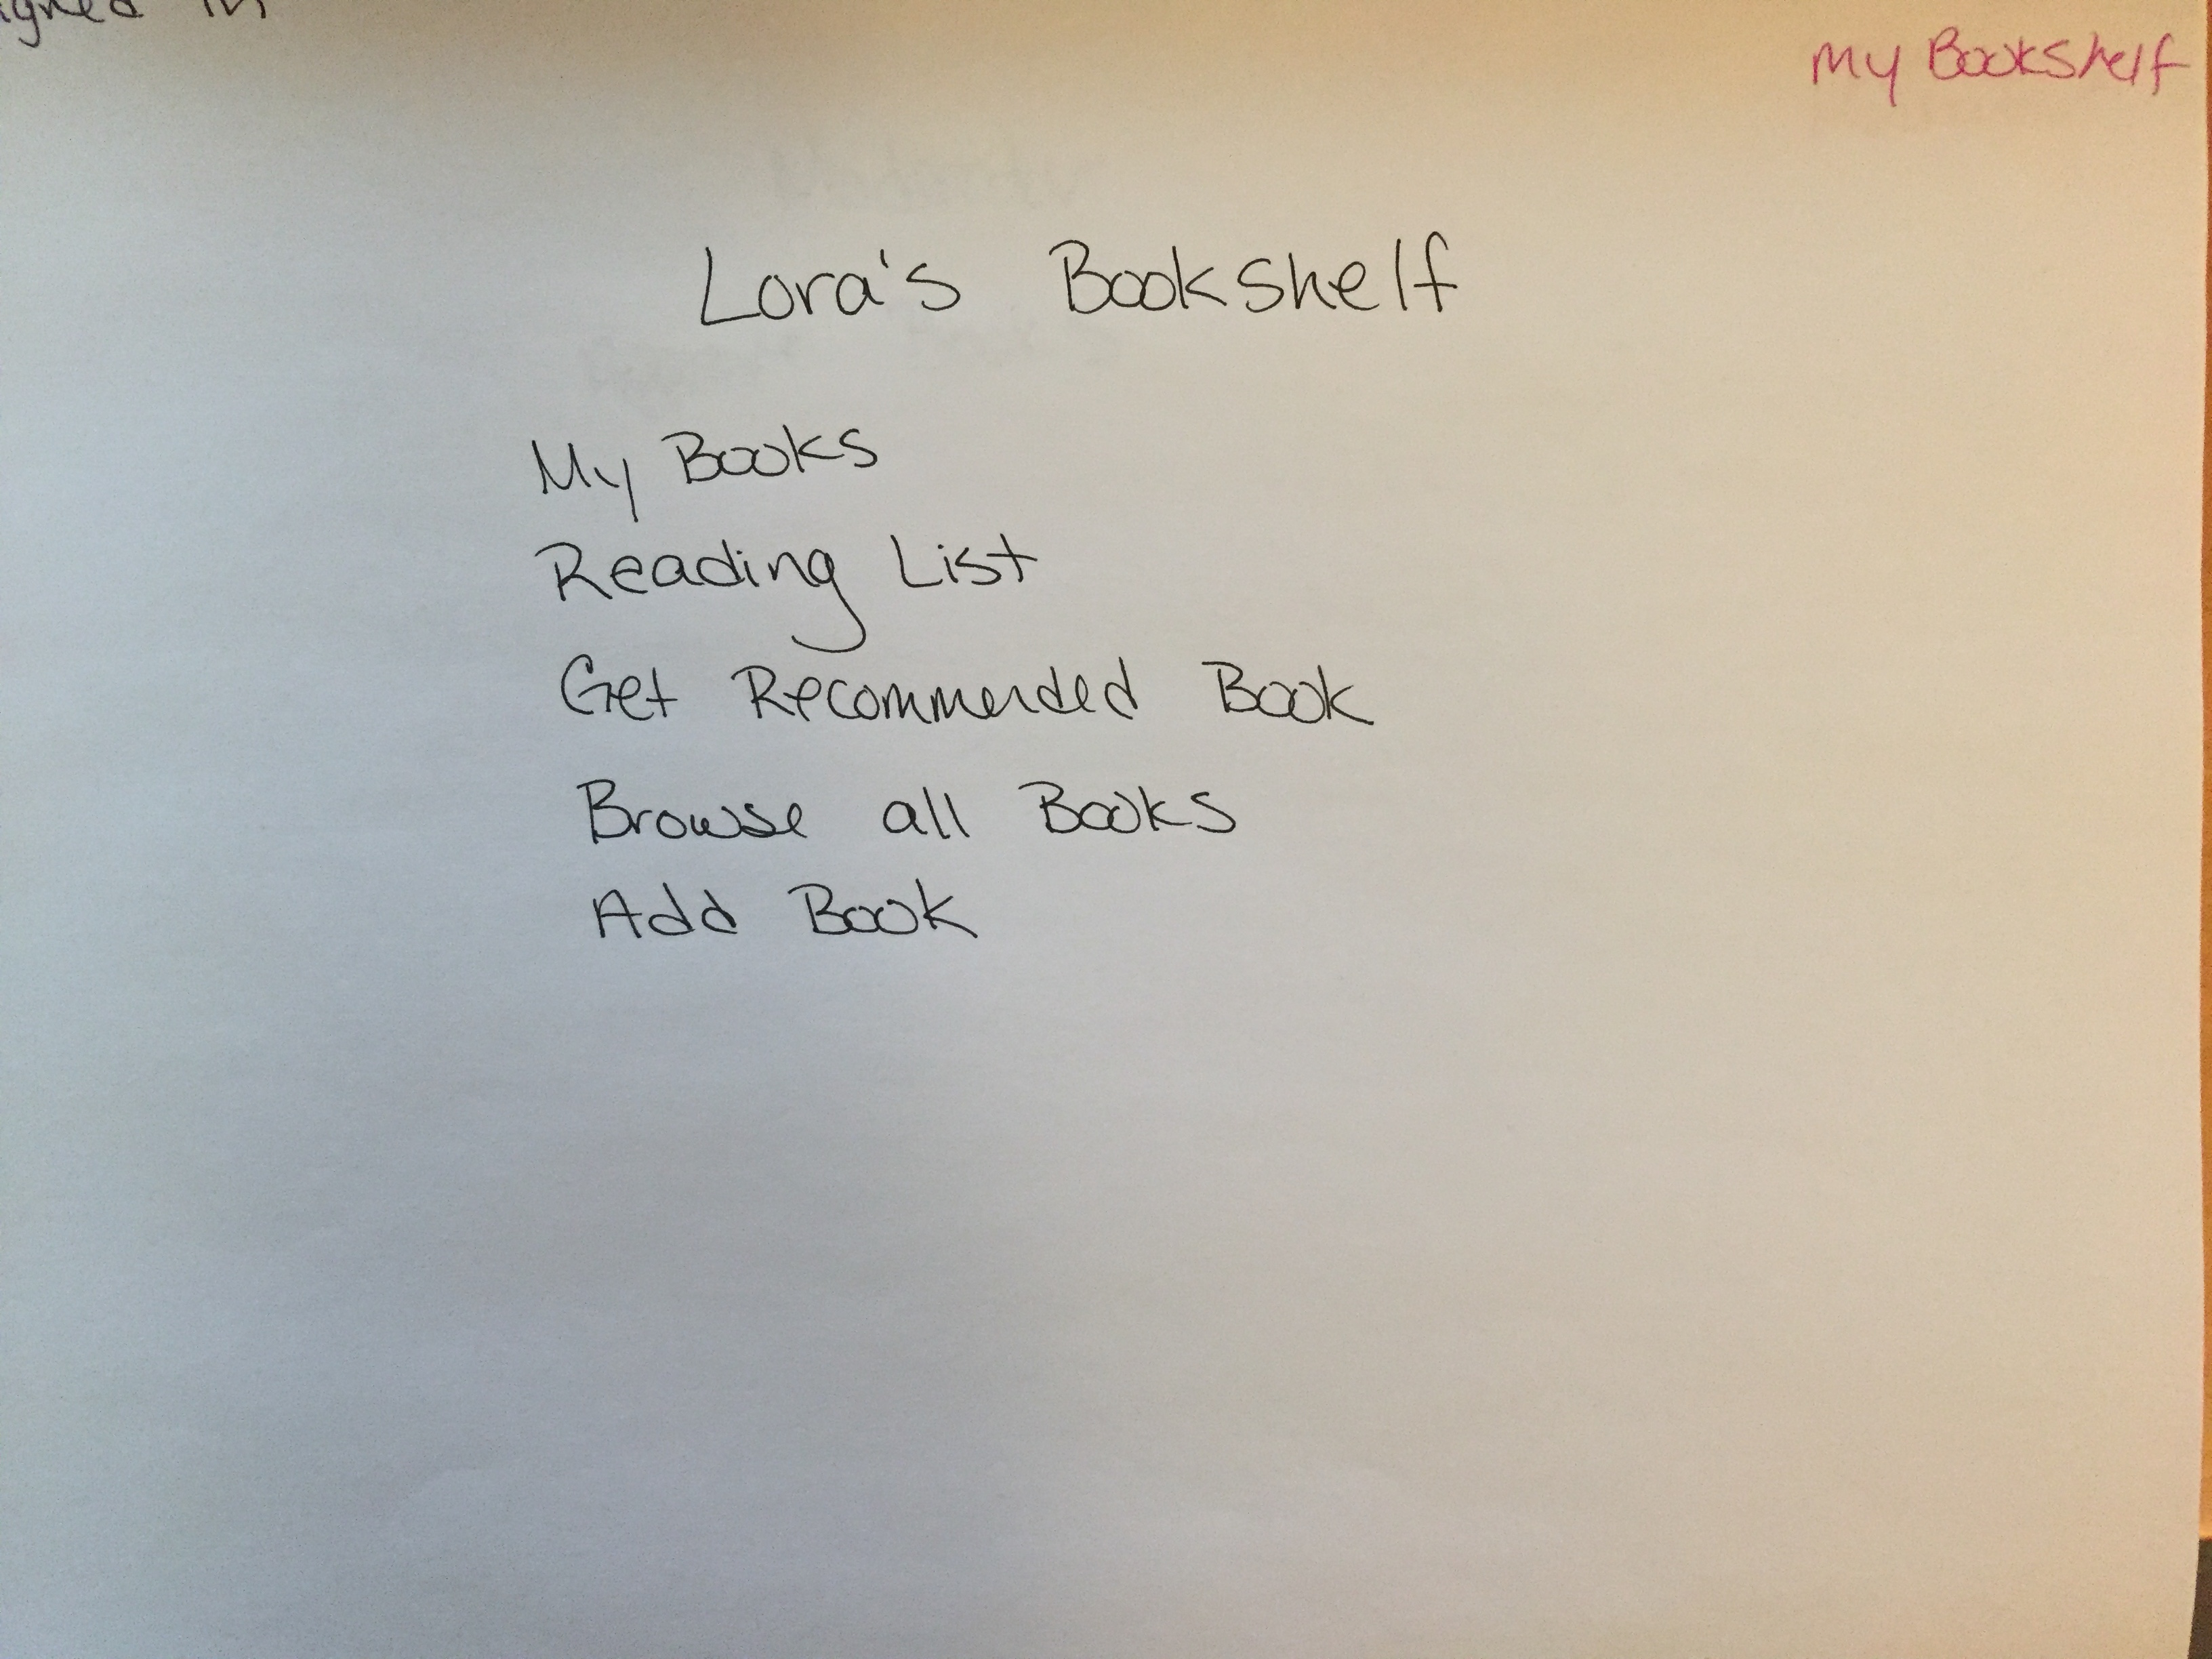 in
My Bookshelf
Lora's Bookshelf
My Books
Reading List
Get Recommended Book
Browse all Books
Add Book